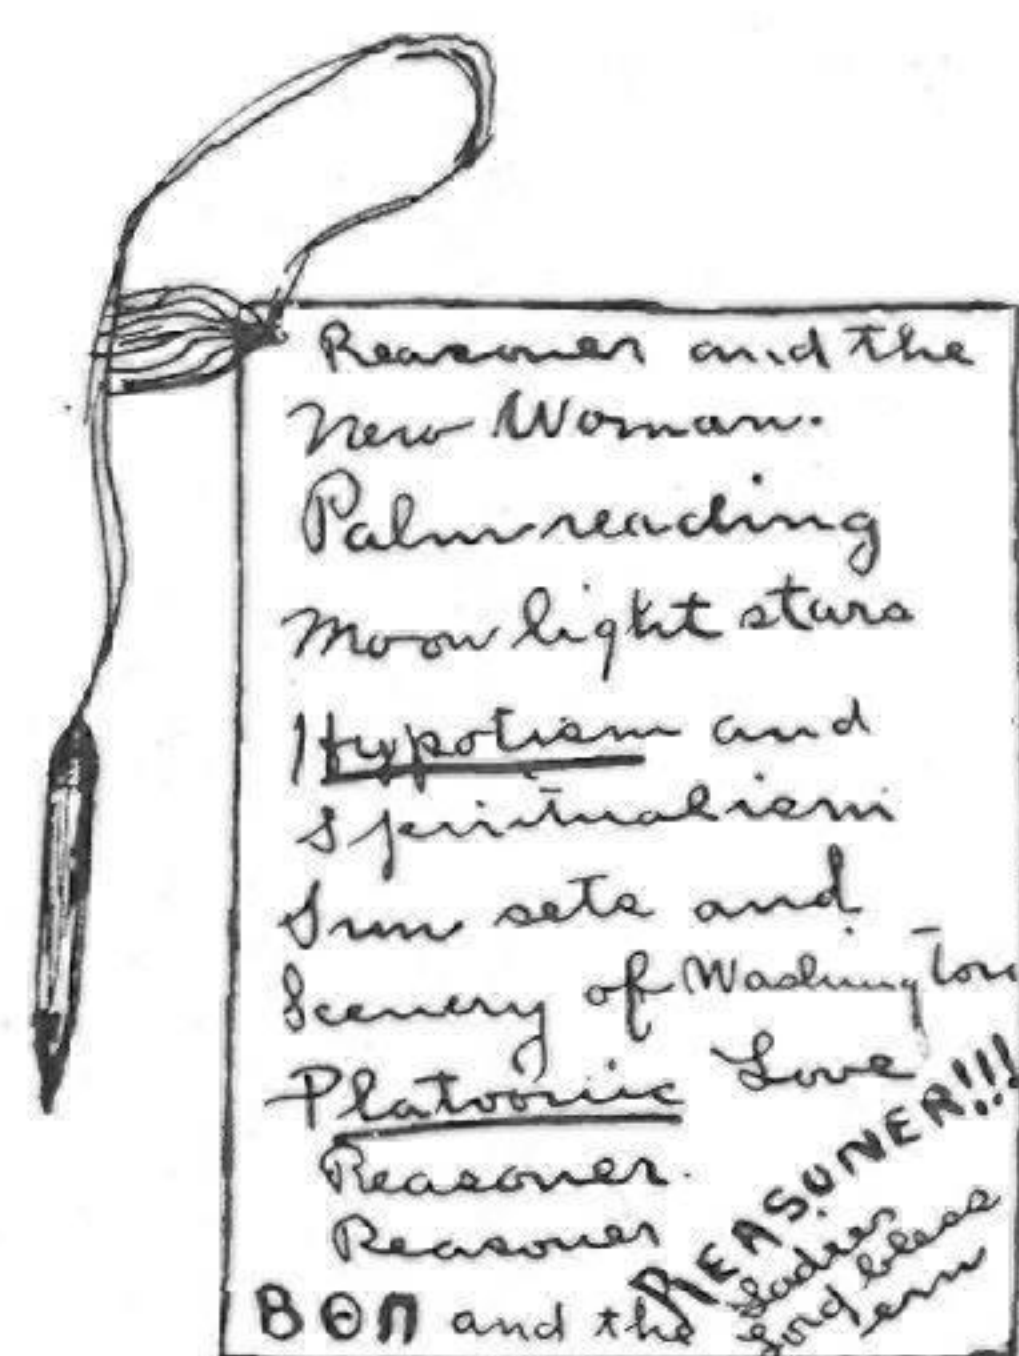 Reasoner and the
New Woman.
Palm reading
Moon light stars
Hypotism and
Spiritualism
Sun sets and
Scenery of Washington
Platonic Love
Reasoner.
Reasoner
BΘΠ and the
REASONER!!!
Ladies
Lord bless
em